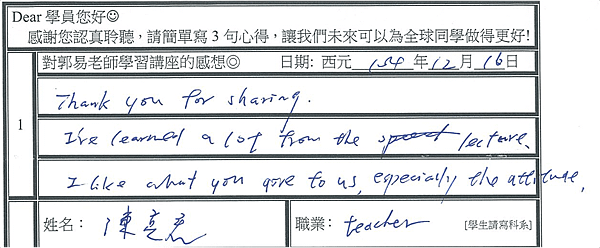 Dear 學員您好☺
感謝您認真聆聽，請簡單寫 3 句心得，讓我們未來可以為全球同學做得更好!
對郭易老師學習講座的感想◎ 日期: 西元 104 年 12 月 16 日
1
Thank you for sharing.
I've learned a lot from the lecture.
I like what you gave to us, especially the attitude.
姓名: 陳 職業: teacher [學生請寫科系]